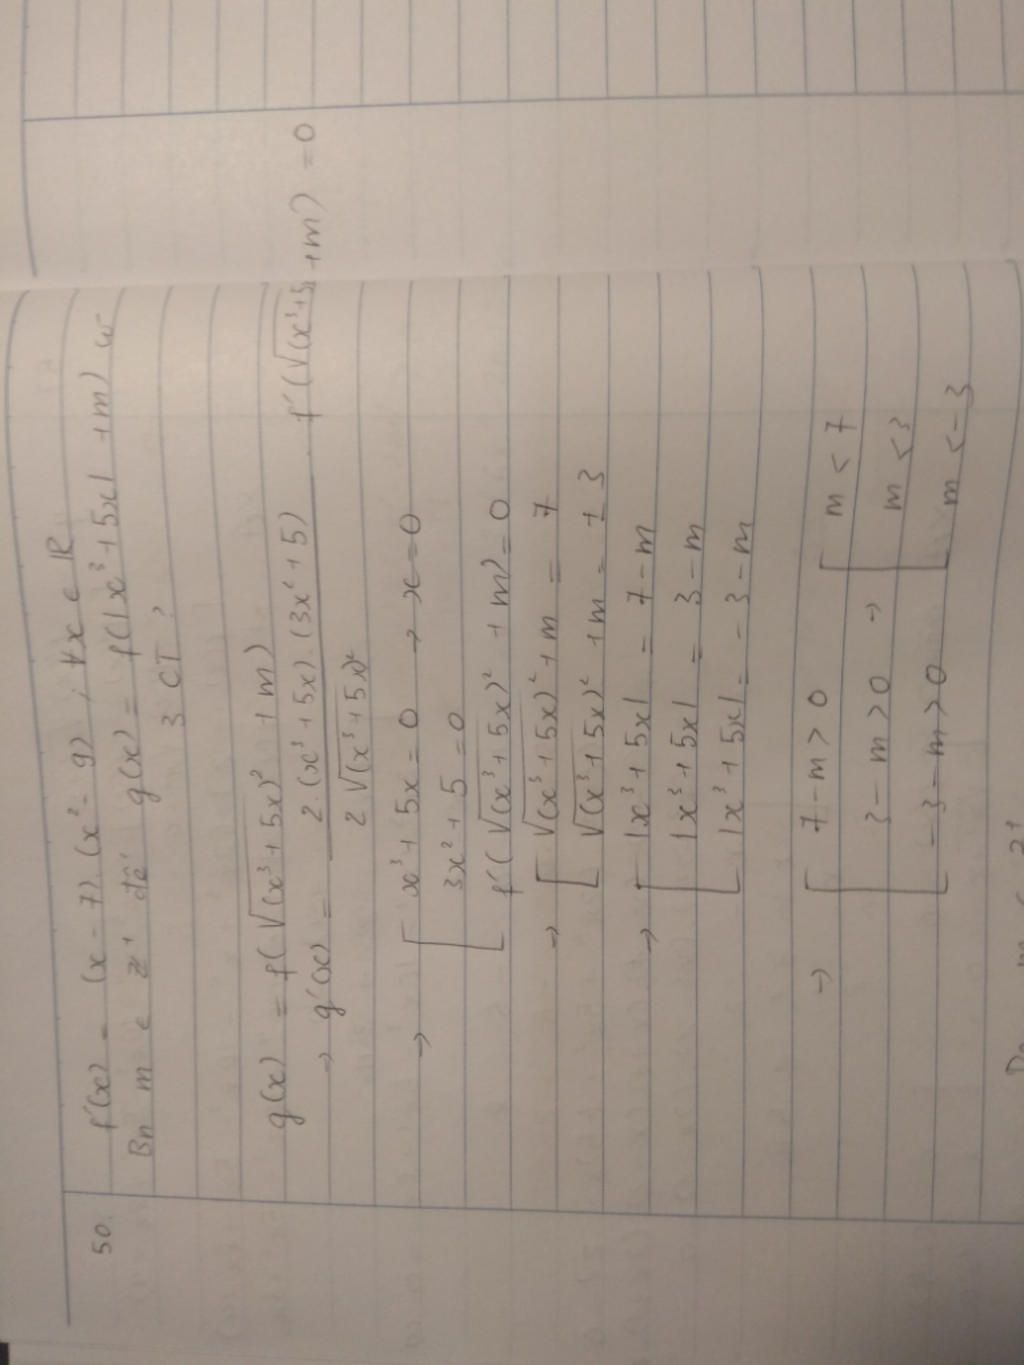 50. f'(x) = (x - 7).(x² - 9) ; ∀x ∈ R
Bn m ∈ Z⁺ để g(x) = f(|x³ + 5x| + m) có
3 CT ?
g(x) = f(√(x³ + 5x)² + m)
→ g'(x) = 2.(x³ + 5x).(3x² + 5) / 2√(x³ + 5x)² . f'(√(x³ + 5 + m) = 0
→ [ x³ + 5x = 0 → x = 0
3x² + 5 = 0
f'(√(x³ + 5x)² + m) = 0
→ [ √(x³ + 5x)² + m = 7
√(x³ + 5x)² + m = ± 3
→ [ |x³ + 5x| = 7 - m
|x³ + 5x| = 3 - m
|x³ + 5x| = - 3 - m
→ [ 7 - m > 0 → [ m < 7
3 - m > 0 m < 3
- 3 - m > 0 m < - 3